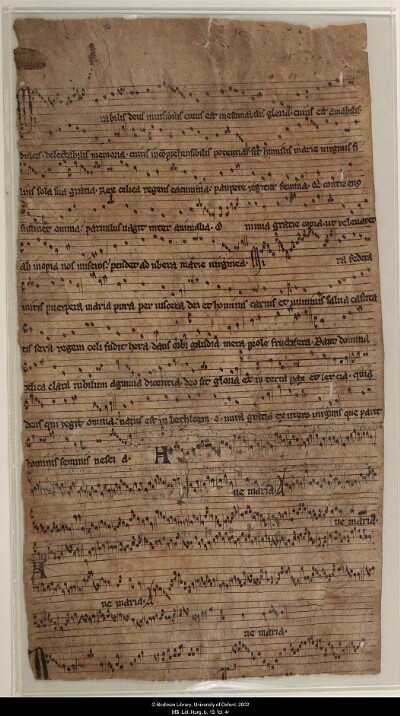 rabilis deus inuisibilis cuius est inestimabilis gloria. cuius est amabilis
dulcis. delectabilis memoria. cuius incomprehensibilis potentia. humilis marie uirginis
sola sua gratia. Rex celica regens cacumina. paupere femina. continens
sustinet omnia. paruulus uagit inter animalia. O nimia gratie copia. ut releuaret
ab inopia nos miseros. pendet ad ubera marie uirginea. ra federa
mitis puerpera maria pura per uiscera dei et hominis carnis et numinis
tis sera regem celi fudit hera. dans orbi gaudia mera prole fructifera. Dant
celica clara iubilum agmina dicentia. deo sit gloria et in terra pax et leticia. quia
deus qui regit omnia. natus est in bethleem. o. mira gratia ex utero uirginis que parit
hominis seminis nescia.
A
ue maria.
ue maria.
A
ue maria.
ue maria.
© Bodleian Library, University of Oxford, 2002
MS. Lat. liturg. b. 19, fol. 4r